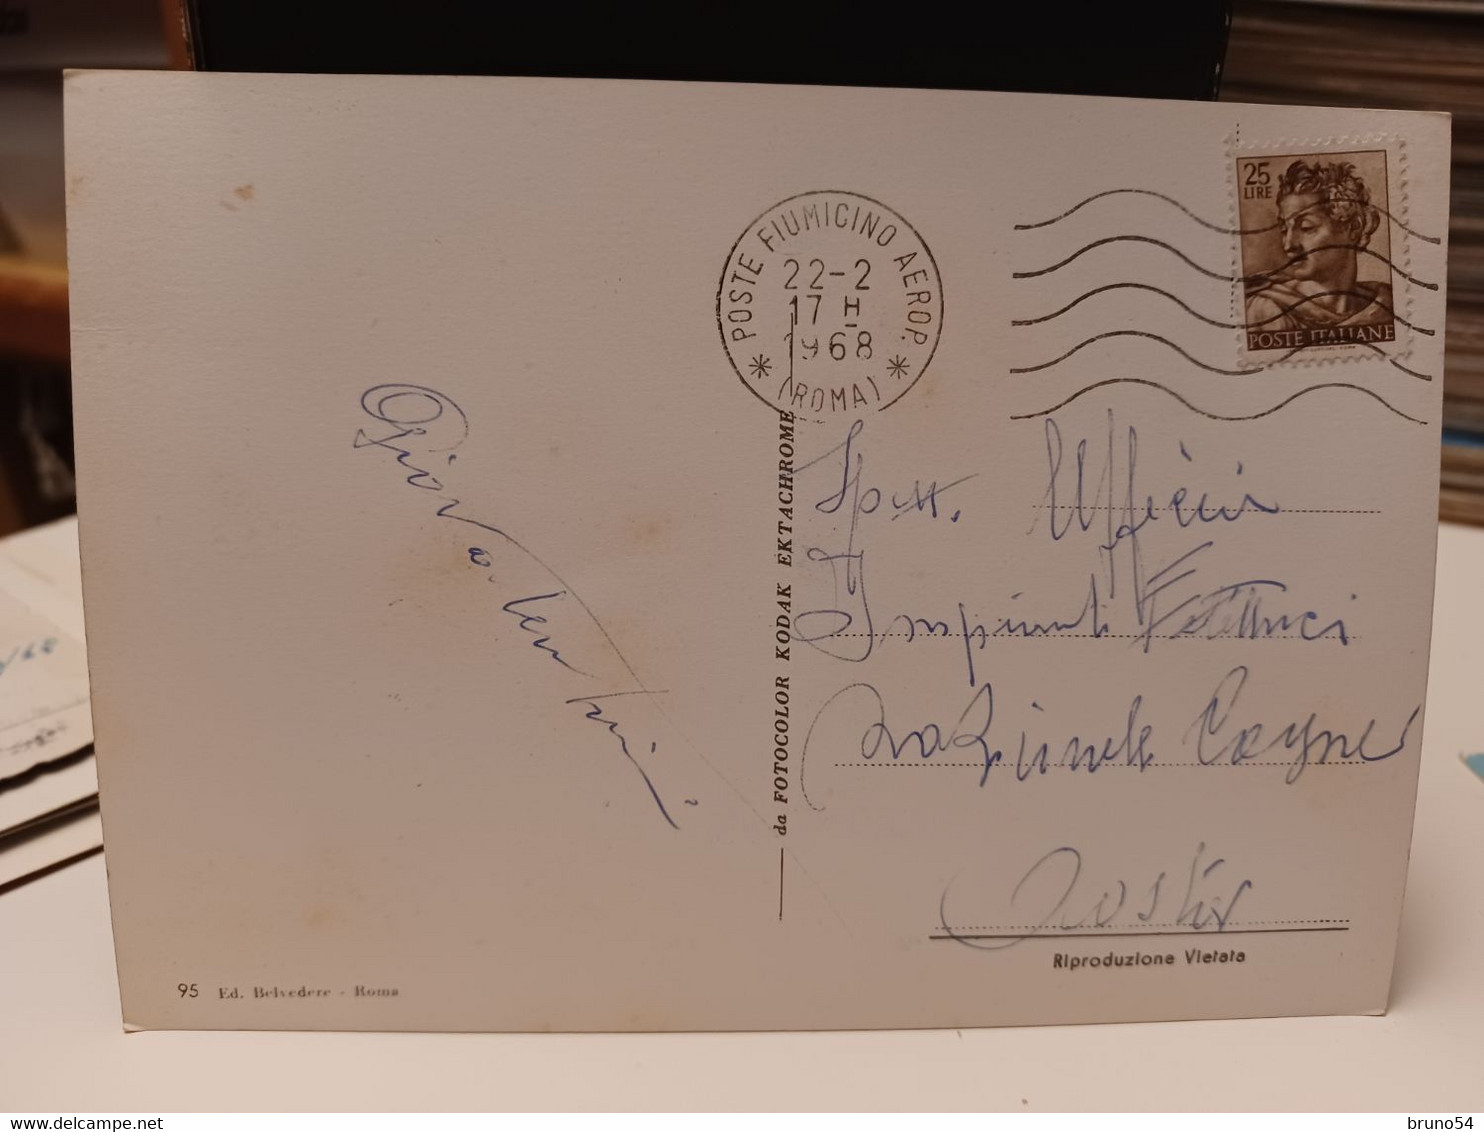 POSTE FIUMICINO AEROP.
22-2
17 H
1968
(ROMA)
25
LIRE
POSTE ITALIANE
Spett. Uffici
Impianti Elettrici
Nazionale Cogne
Aosta
da FOTOCOLOR KODAK EKTACHROME
Riproduzione Vietata
95 Ed. Belvedere - Roma
bruno54